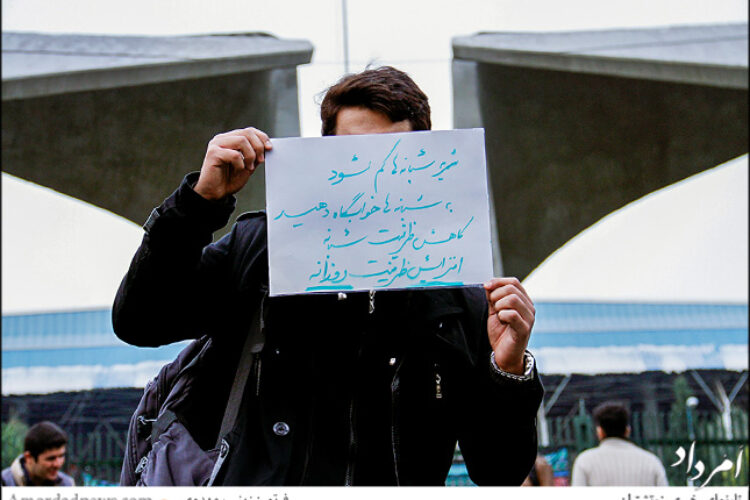 شهریه شبانه‌ها کم شود
به شبانه‌ها خوابگاه دهید
کاهش ظرفیت شبانه
افزایش ظرفیت روزانه
امرداد
Amordadnews.com